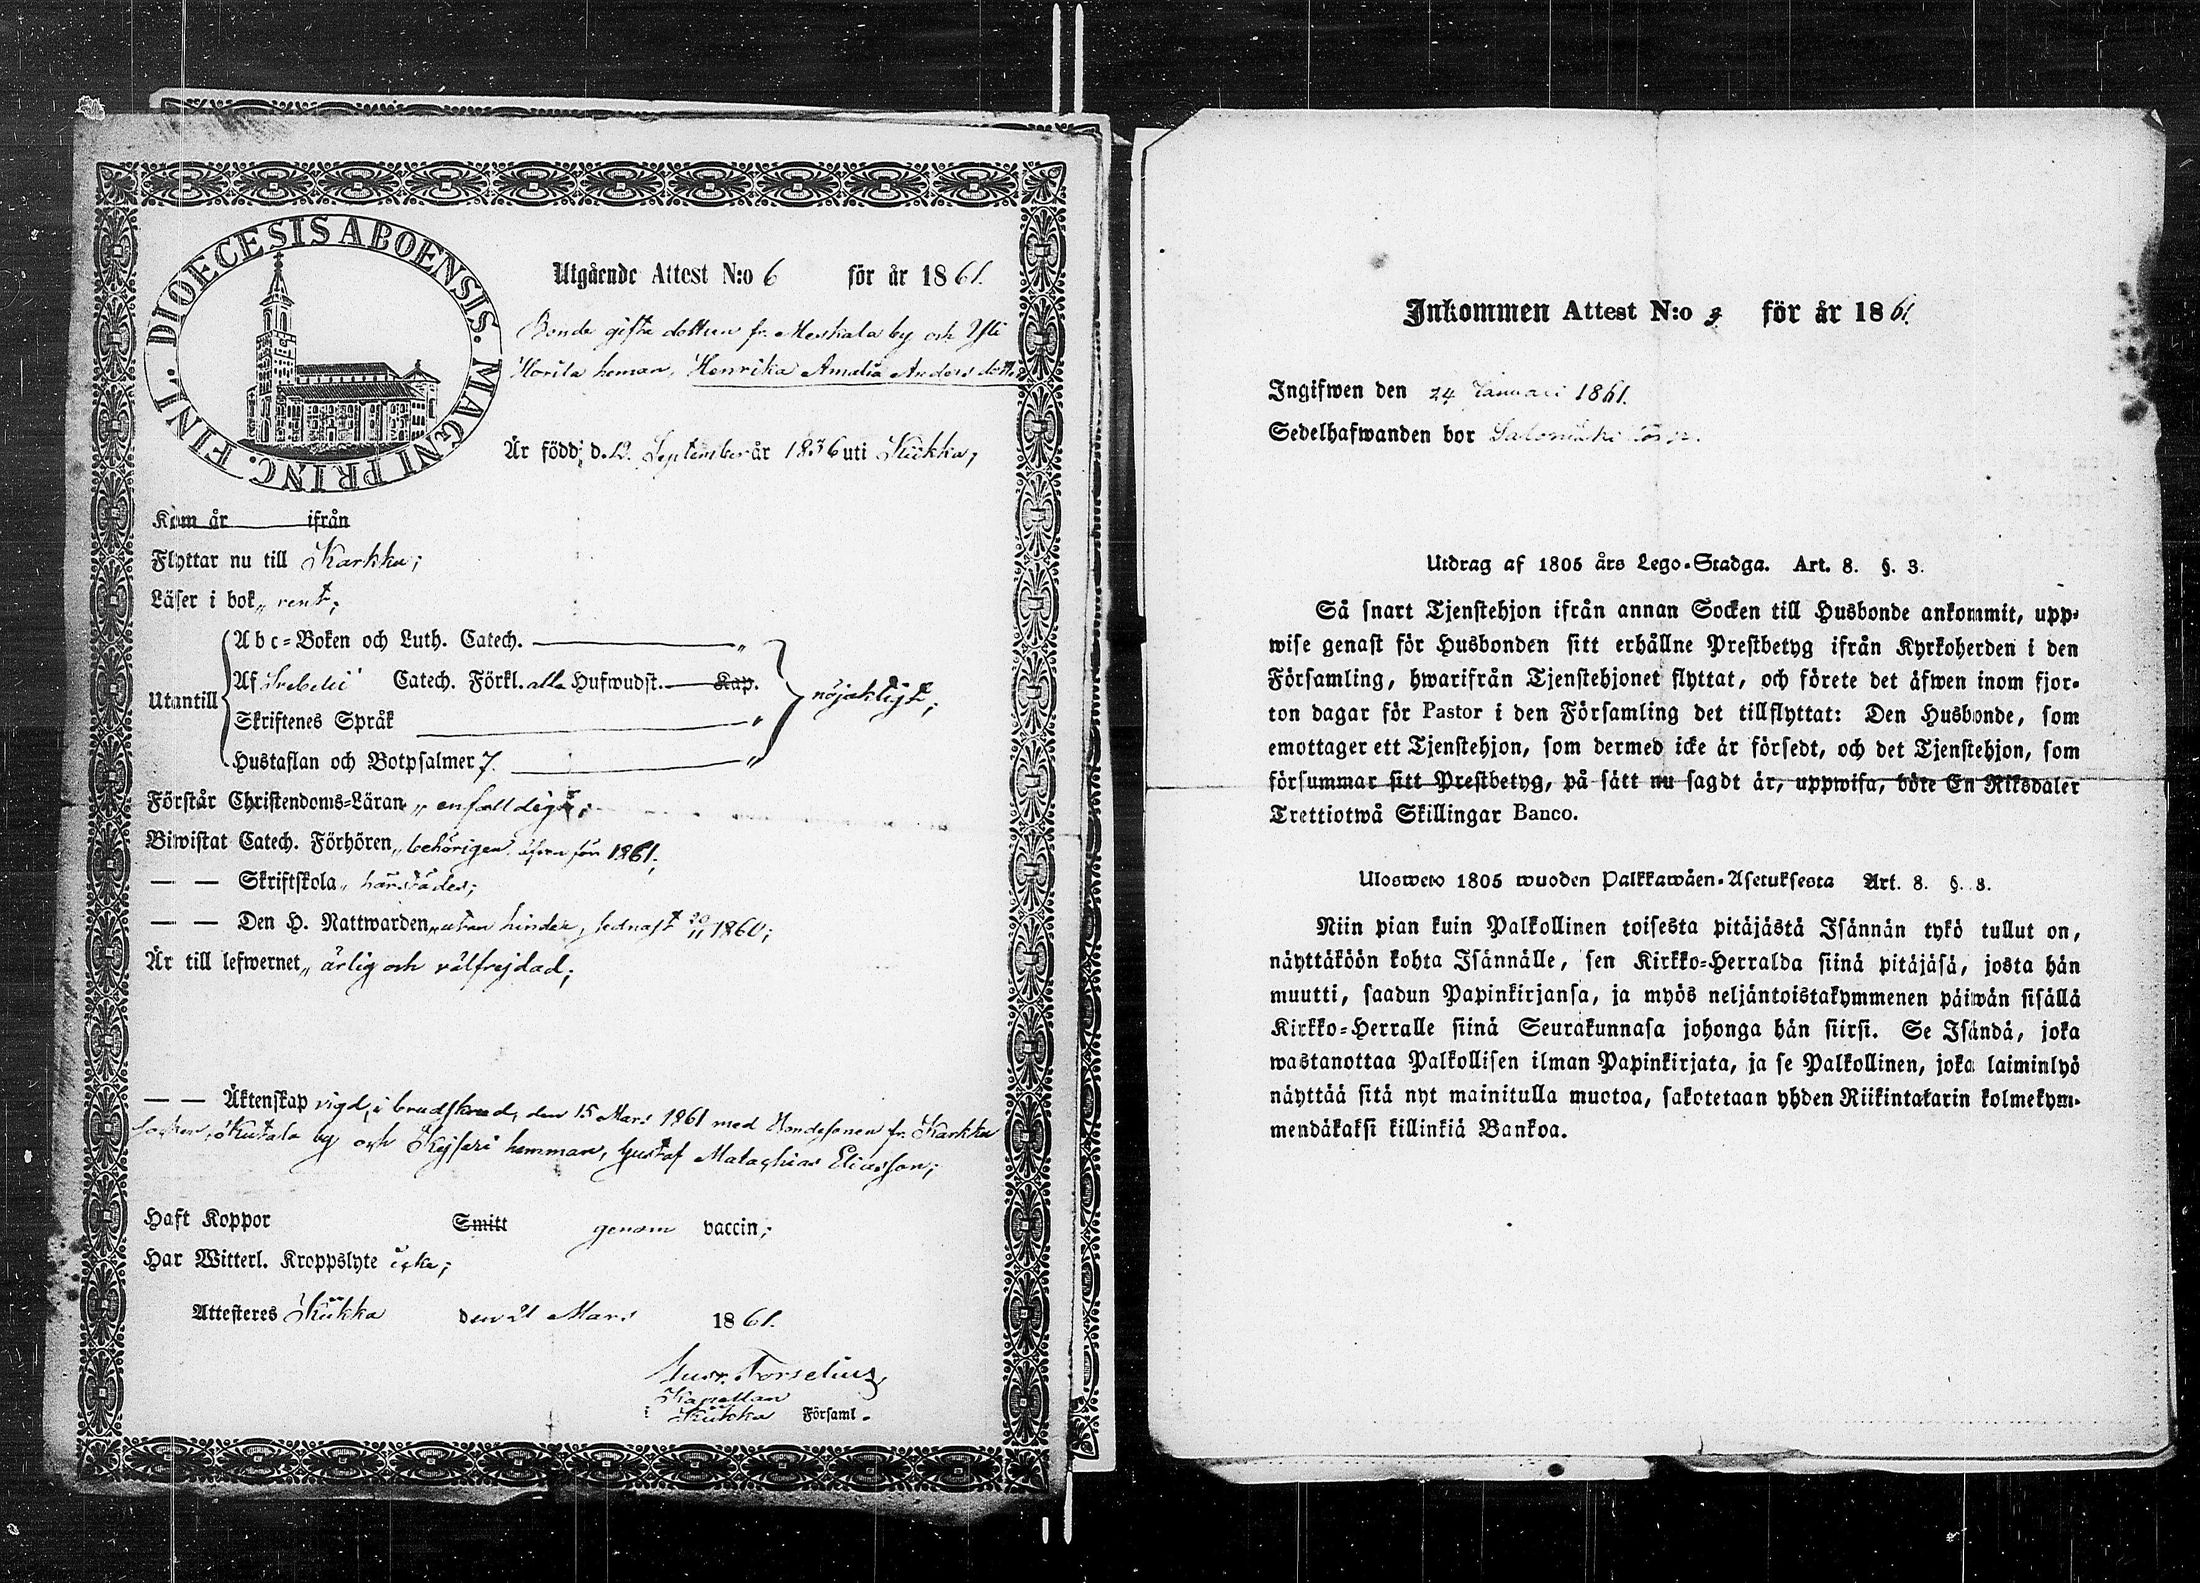 DIOECESIS ABOENSIS. MAGNI PRINC. FINL.
Utgående Attest N:o 6 för år 1861.
Bonde gifta dottren fr. Meskala by och Yli
Horila heman, Henrika Amalia Anders dotter
Är född; d. 12. September år 1836 uti Kiikka,
Kom år ifrån
Flyttar nu till Karkku;
Läser i bok „ rent;
Abc=Boken och Luth. Catech. "
Utantill
Af Svebelii Catech. Förkl. alla Hufwudst. Kap.
nöjaktigt;
Skriftenes Språk "
Hustaflan och Botpsalmer 7. "
Förstår Christendoms=Läran „ enfaldigt;
Biwistat Catech. Förhören „ behörigen, äfven för 1861;
— — Skriftskola „ härstädes;
— — Den H. Nattwarden „ utan hinder, sednast 20/11 1860;
Är till lefwernet „ ärlig och välfrejdad;
— — Äktenskap vigd, i brudskrud, den 15 Mars 1861 med Bondesonen fr. Karkku
socken, Kutala by och Kejsari hemman, Gustaf Matathias Eliasson;
Haft Koppor Smitt genom vaccin;
Har Witterl. Kroppslyte icke;
Attesteres Kiikka den 21 Mars 1861.
Gust. Forselius,
Kapellan
i Kiikka Församl.
Inkommen Attest N:o 3 för år 1861.
Ingifwen den 24 Januari 1861.
Sedelhafwanden bor
Utdrag af 1805 års Lego-Stadga. Art. 8. §. 3.
Så snart Tjenstehjon ifrån annan Socken till Husbonde ankommit, upp-
wise genast för Husbonden sitt erhållne Prestbetyg ifrån Kyrkoherden i den
Församling, hwarifrån Tjenstehjonet flyttat, och förete det äfwen inom fjor-
ton dagar för Pastor i den Församling det tillflyttat: Den Husbonde, som
emottager ett Tjenstehjon, som dermed icke är försedt, och det Tjenstehjon, som
försummar sitt Prestbetyg, på sätt nu sagdt är, uppwisa, böte En Riksdaler
Trettiotwå Skillingar Banco.
Ulosweto 1805 wuoden Palkkawäen-Asetuksesta Art. 8. §. 3.
Niin pian kuin Palkollinen toisesta pitäjästä Isännän tykö tullut on,
näyttäköön kohta Isännälle, sen Kirkko=Herralda siinä pitäjäsä, josta hän
muutti, saadun Papinkirjansa, ja myös neljäntoistakymmenen päiwän sisällä
Kirkko=Herralle siinä Seurakunnasa johonga hän siirsi. Se Isändä, joka
wastanottaa Palkollisen ilman Papinkirjata, ja se Palkollinen, joka laiminlyö
näyttää sitä nyt mainitulla muotoa, sakotetaan yhden Riikintalarin kolmekym-
mendäkaksi killinkiä Bankoa.